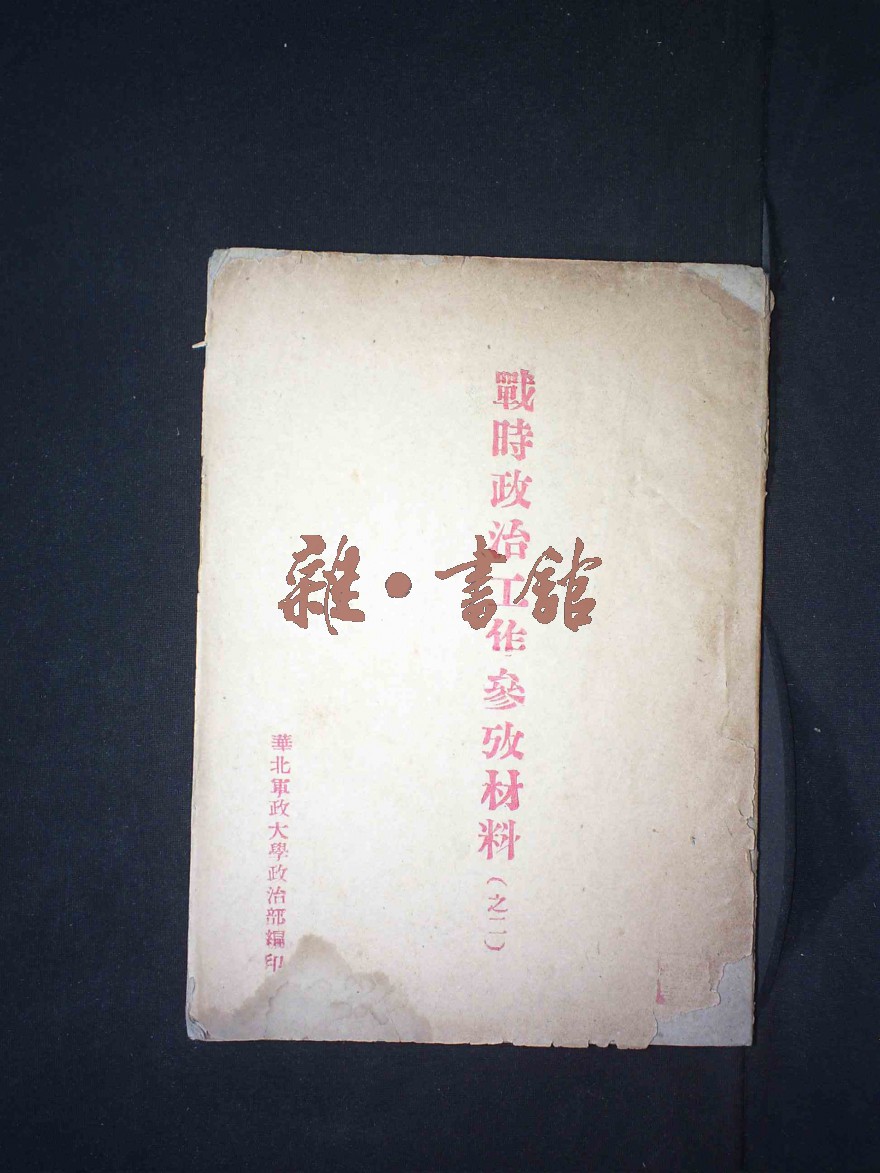 戰時政治工作參攷材料(之二)
華北軍政大學政治部編印
雜·書館